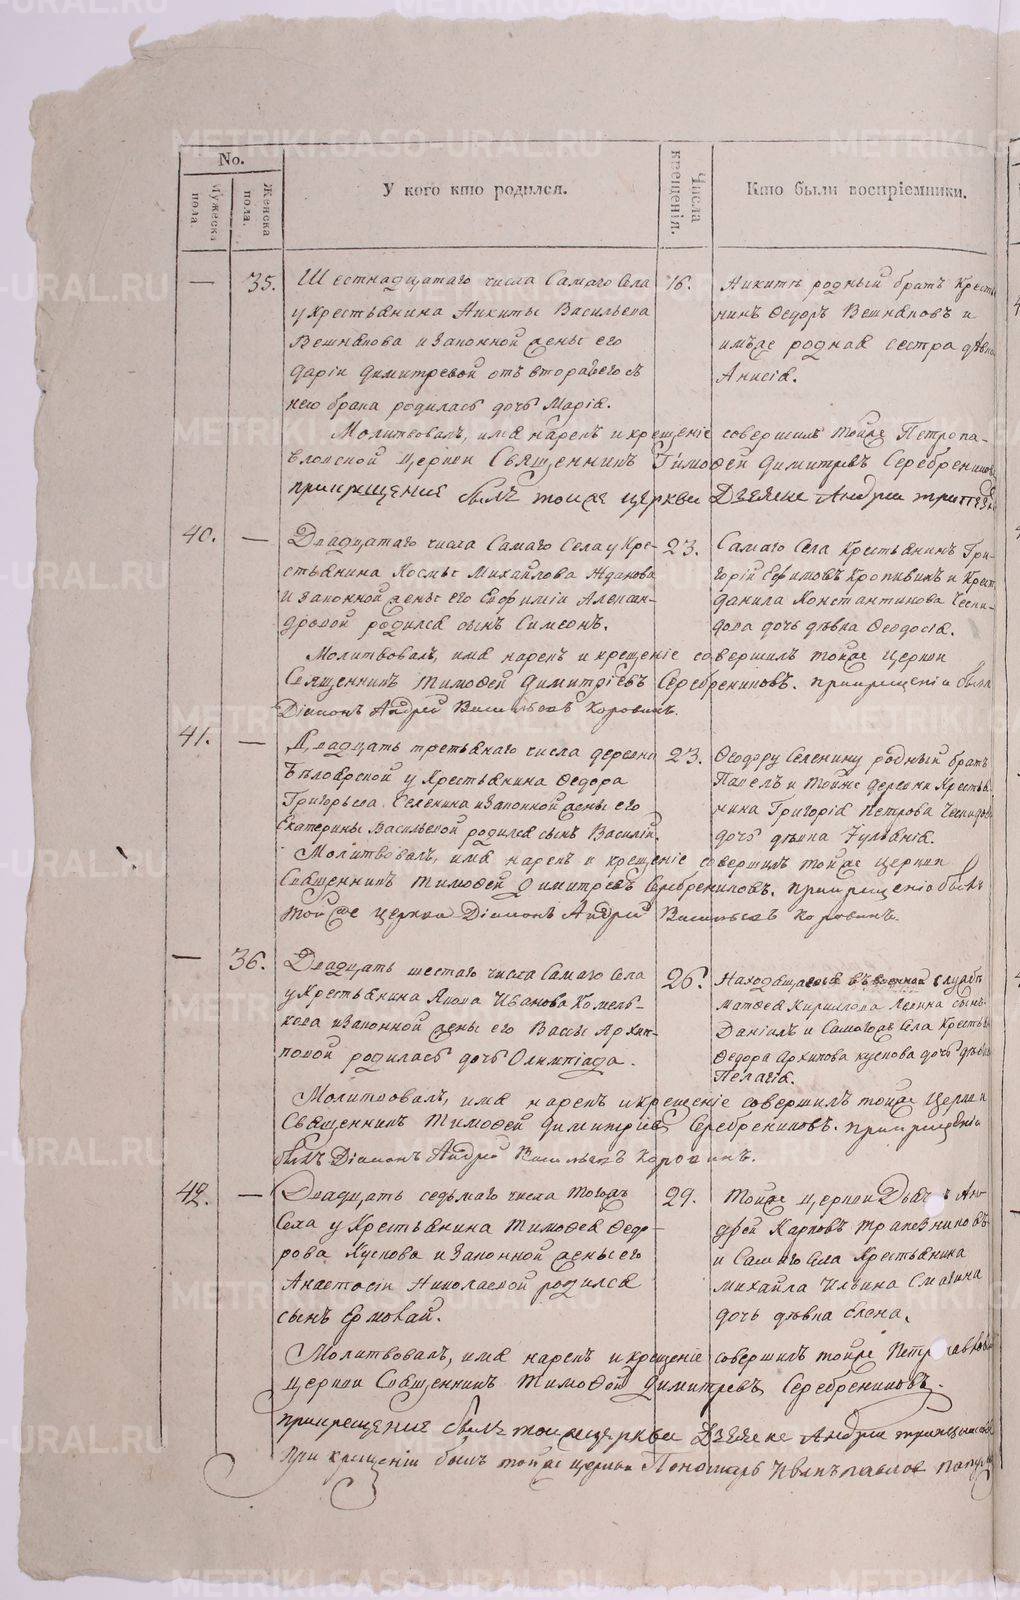 No.
Мужеска пола
Женска пола.
У кого кто родился.
Числа крещенія.
Кто были воспріемники.
— 35. Шестнадцатаго числа Самаго Села
у крестьянина Никиты Васильева
и законной жены его
Даріи Димитревой отъ втораго съ
нею брака родилась дочь Марія.
16. Никитѣ родный братъ Кресть
нинъ Ѳедоръ и
имъже родная сестра дѣвка
Анисія.
Молитвовалъ, имя нарекъ и крещеніе совершилъ тойже Петропа-
вловской церкви Священникъ Тимоѳей Димитревъ Серебрениковъ
прикрещение былъ тоиже церкви Дьячекъ Андреи
40. — Двадцатаго числа Самаго Села у Кре-
стьянина Космы Михайлова Жданова
и законной жены его Евфиміи Алексан-
дровой родился сынъ Симеонъ.
23. Самаго Села Крестьянинъ Гри-
горій Ефимовъ Кропивинъ и Крест
Данила Константинова
дочь дѣвка Ѳеодосія.
Молитвовалъ, имя нарекъ и крещеніе совершилъ тойже церкви
Священникъ Тимоѳей Димитріевъ Серебрениковъ. прикрещеніи былъ
Діаконъ Андрей Васильевъ Коровинъ.
41. — Двадцать третьяго числа деревни
Бѣлоярской у Крестьянина Ѳедора
Григорьева Селенина и законной жены его
Екатерины Васильевой родился сынъ Василій.
23. Ѳеодору Селенину родный братъ
Павелъ и тойже деревни Крестья
нина Григорія Петрова
дочь дѣвка Іуліанія.
Молитвовалъ, имя нарекъ и крещеніе совершилъ тойже церкви
Священникъ Тимоѳей Димитревъ Серебрениковъ. прикрещеніе былъ
тойже церкви Діаконъ Андрей Васильевъ Коровинъ.
— 36. Двадцать шестаго числа Самаго Села
у Крестьянина Якова Иванова Комель-
кова и законной жены его Вассы Архип-
повой родилась дочь Олимпіада.
26. Находящагося въ военной службѣ
Матѳея Кириллова сынъ
Даніилъ и Самогожъ Села Крестья
Ѳедора Архипова Кускова дочь дѣвка
Пелагія.
Молитвовалъ, имя нарекъ и крещеніе совершилъ тойже церкви
Священникъ Тимоѳей Димитріевъ Серебрениковъ. прикрещеніи
былъ Діаконъ Андрей Васильевъ Коровинъ.
42. — Двадцать седьмаго числа тогожъ
Села у Крестьянина Тимоѳея Ѳедо-
рова Кускова и законной жены его
Анастасіи Николаевой родился
сынъ Ермолай.
29. Тойже церкви Дьячекъ Ан-
дрей Карповъ Трапезниковъ
и Самаго Села Крестьянина
Михайла Ильина Смагина
дочь дѣвка Елена.
Молитвовалъ, имя нарекъ и крещеніе совершилъ тойже Петропавловской
церкви Священникъ Тимоѳей Димитревъ Серебрениковъ.
прикрещение былъ тоиже церкви Дьячекъ Андреи
При крещеніи былъ тойже церкви Пономарь Иванъ Павловъ